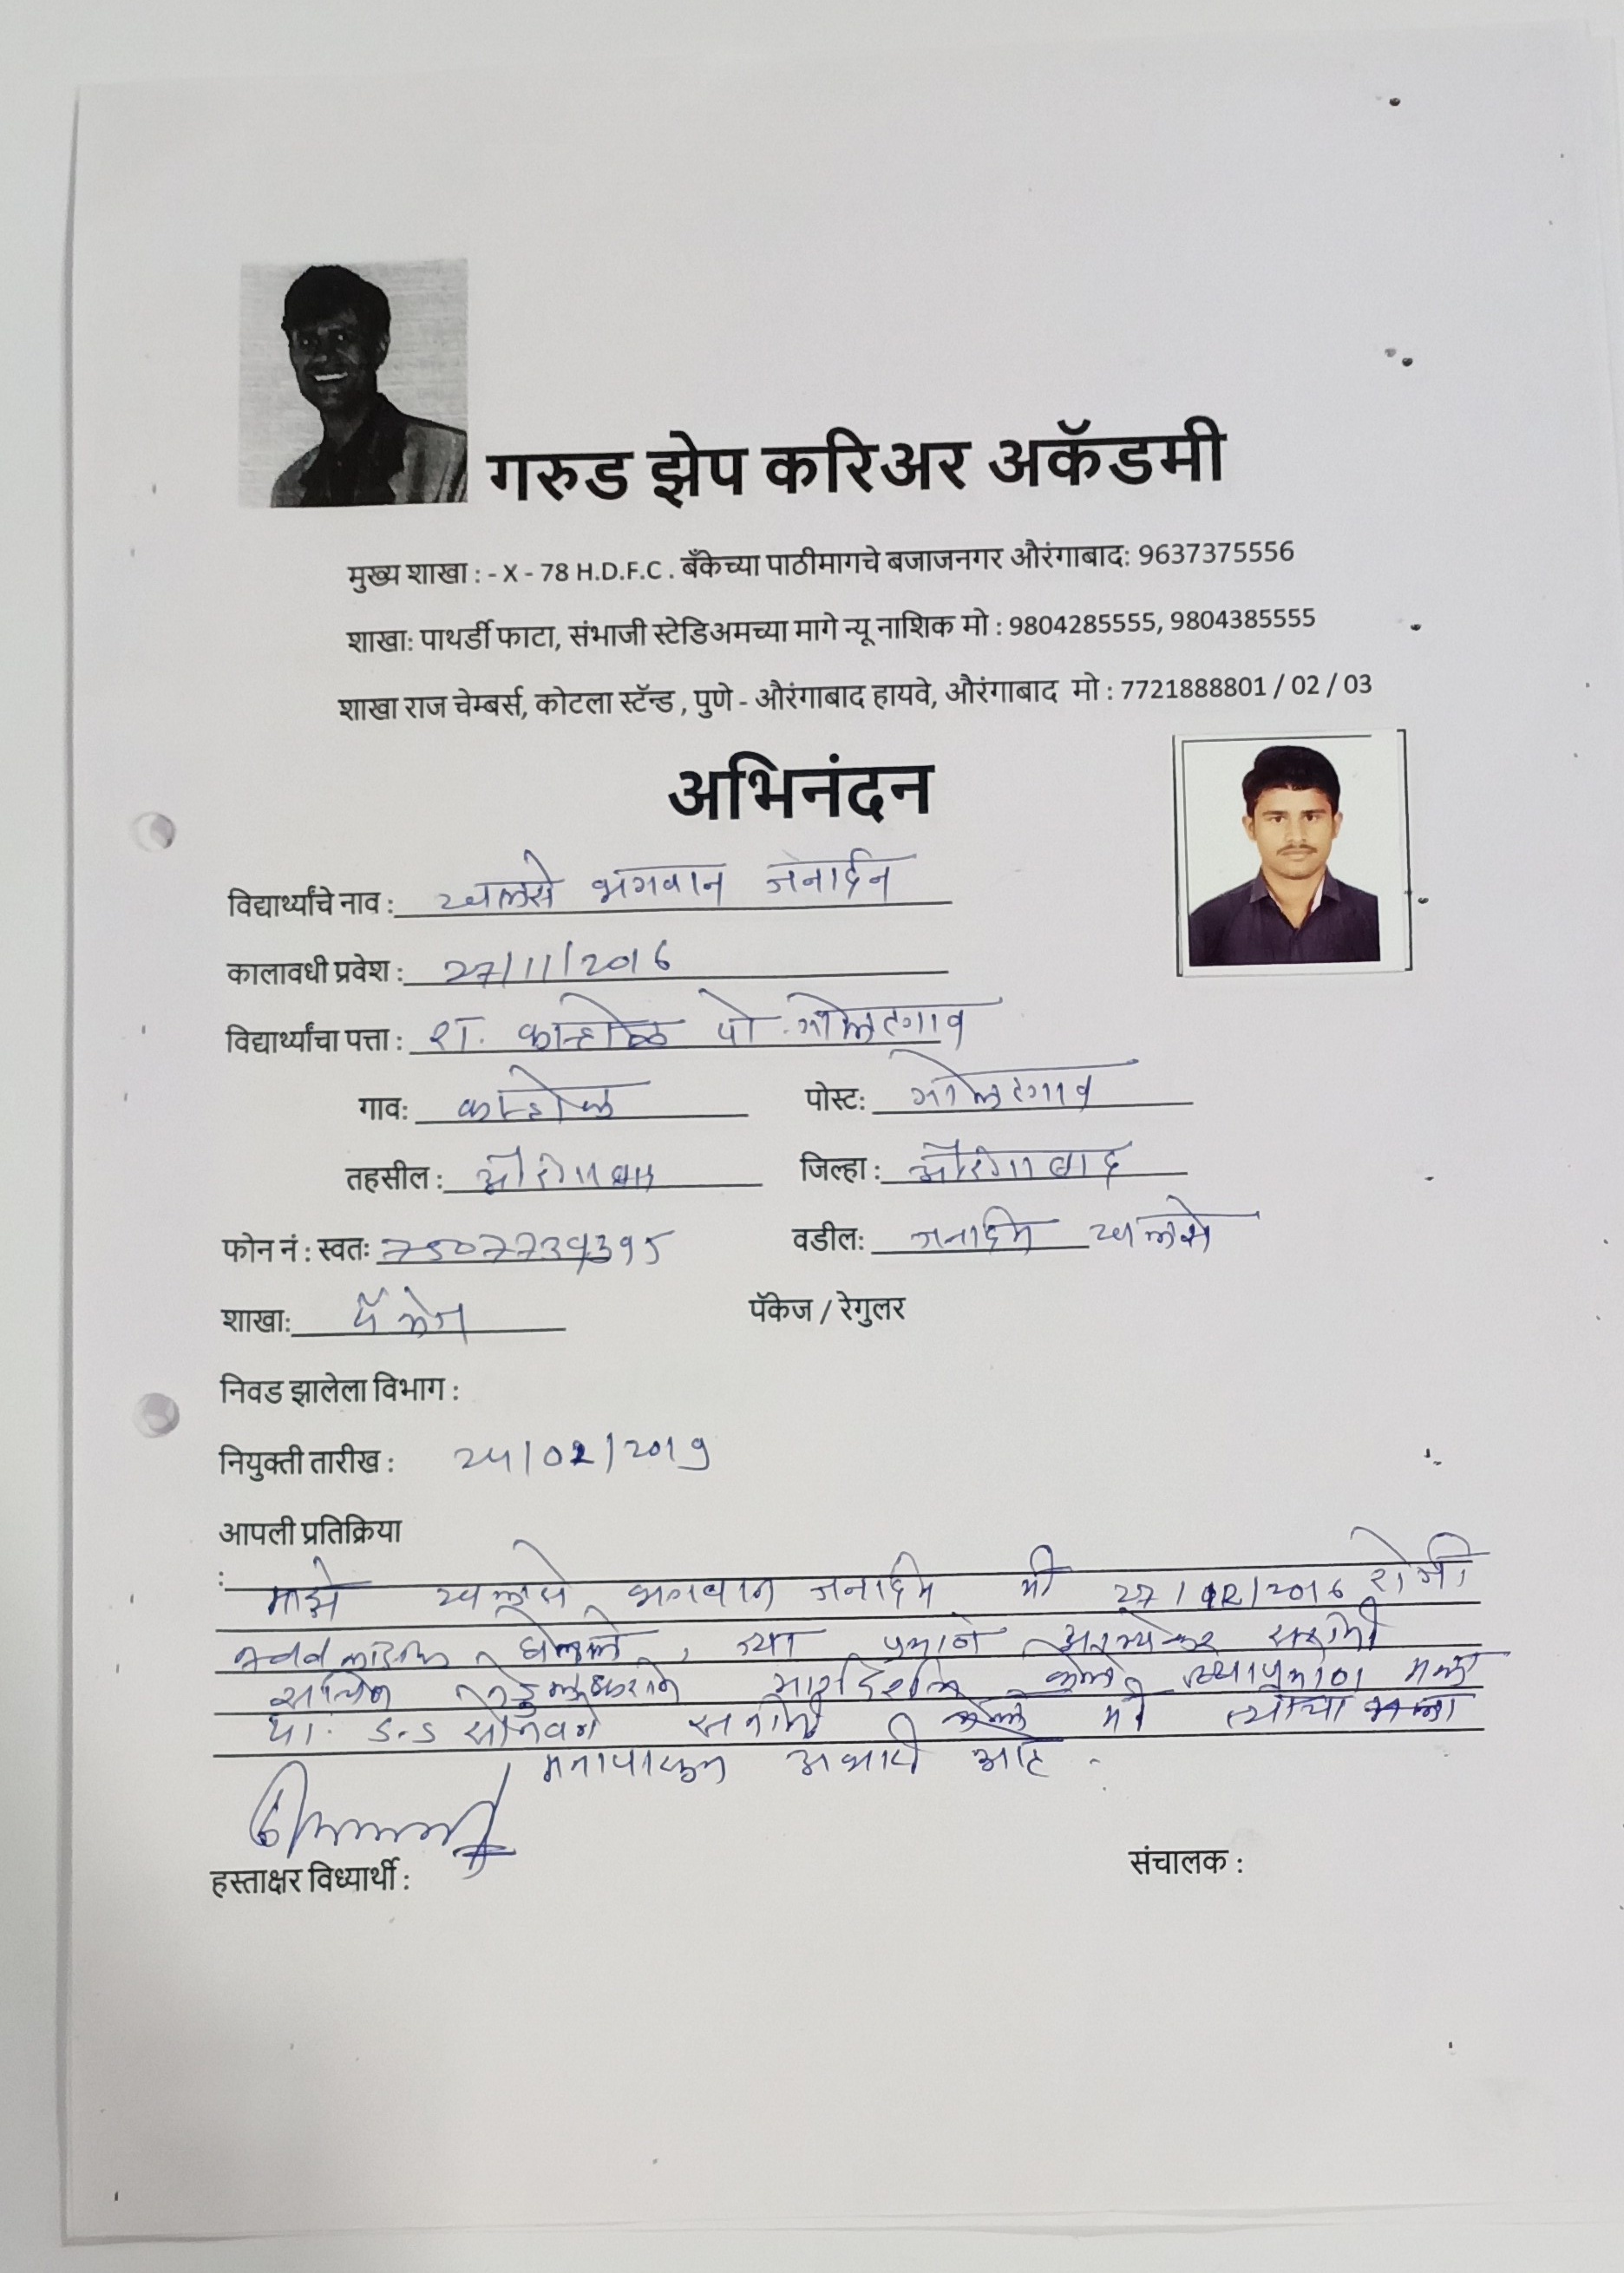 गरुड झेप करिअर अकॅडमी
मुख्य शाखा : - X - 78 H.D.F.C . बँकेच्या पाठीमागचे बजाजनगर औरंगाबाद: 9637375556
शाखा: पाथर्डी फाटा, संभाजी स्टेडिअमच्या मागे न्यू नाशिक मो : 9804285555, 9804385555
शाखा राज चेम्बर्स, कोटला स्टॅन्ड , पुणे - औरंगाबाद हायवे, औरंगाबाद मो : 7721888801 / 02 / 03
अभिनंदन
विद्यार्थ्यांचे नाव : खलसे भगवान जनार्दन
कालावधी प्रवेश : 27/11/2016
विद्यार्थ्यांचा पत्ता : रा. कान्होळ पो. गोलटगाव
गाव: कान्होळ पोस्ट: गोलटगाव
तहसील : औरंगाबाद जिल्हा : औरंगाबाद
फोन नं : स्वतः वडील: जनार्दन खलसे
शाखा: पॅकेज पॅकेज / रेगुलर
निवड झालेला विभाग :
नियुक्ती तारीख : 25/02/2019
आपली प्रतिक्रिया
: माझे खलसे भगवान जनार्दन मी 27/12/2016 रोजी
घेतले, ज्या प्रमाणे सरांनी
सचिन तेंडुलकरला मार्गदर्शन केले त्याप्रमाणे मला
प्रा. S.S सोनवणे सरांनी केले मी त्यांचा
मनापासून आभारी आहे.
हस्ताक्षर विध्यार्थी : संचालक :